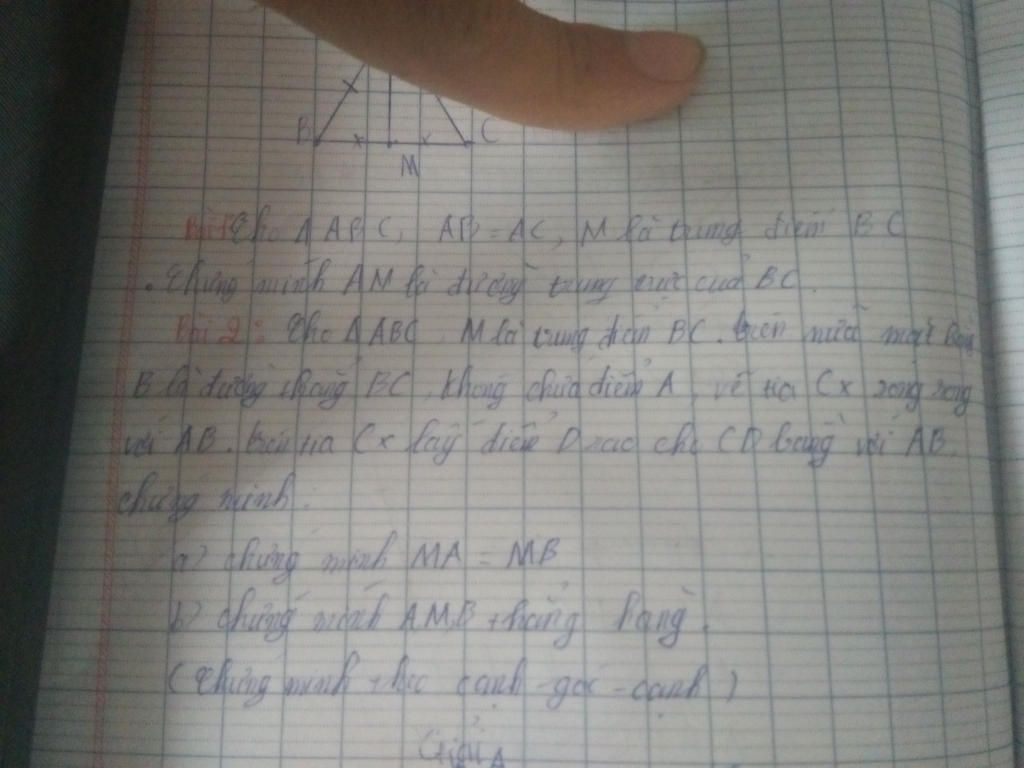 B C
M
Bài 1: Cho Δ ABC, AB = AC, M là trung điểm BC
. Chứng minh AM là đường trung trực của BC.
Bài 2: Cho Δ ABC, M là trung điểm BC. trên nửa mặt
B là đường thẳng BC, không chứa điểm A, vẽ tia Cx song song
với AB. trên tia Cx lấy điểm D sao cho CD bằng với AB.
chứng minh:
a) chứng minh MA = MB
b) chứng minh A,M,B thẳng hàng.
(Chứng minh theo cạnh - góc - cạnh)
Giải
A